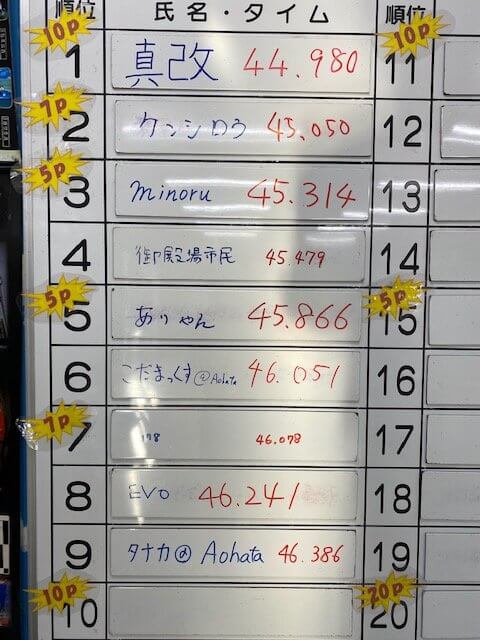 順位 氏名・タイム 順位
10P 10P
1 真改 44.980 11
7P
2 ケンシロウ 45.050 12
5P
3 minoru 45.314 13
4 御殿場市民 45.479 14
5P 5P
5 ありゃん 45.866 15
6 こだまっくす@Aohata 46.051 16
7P
7 46.078 17
8 EVO 46.241 18
9 タナカ@Aohata 46.386 19
10P 20P
10 20